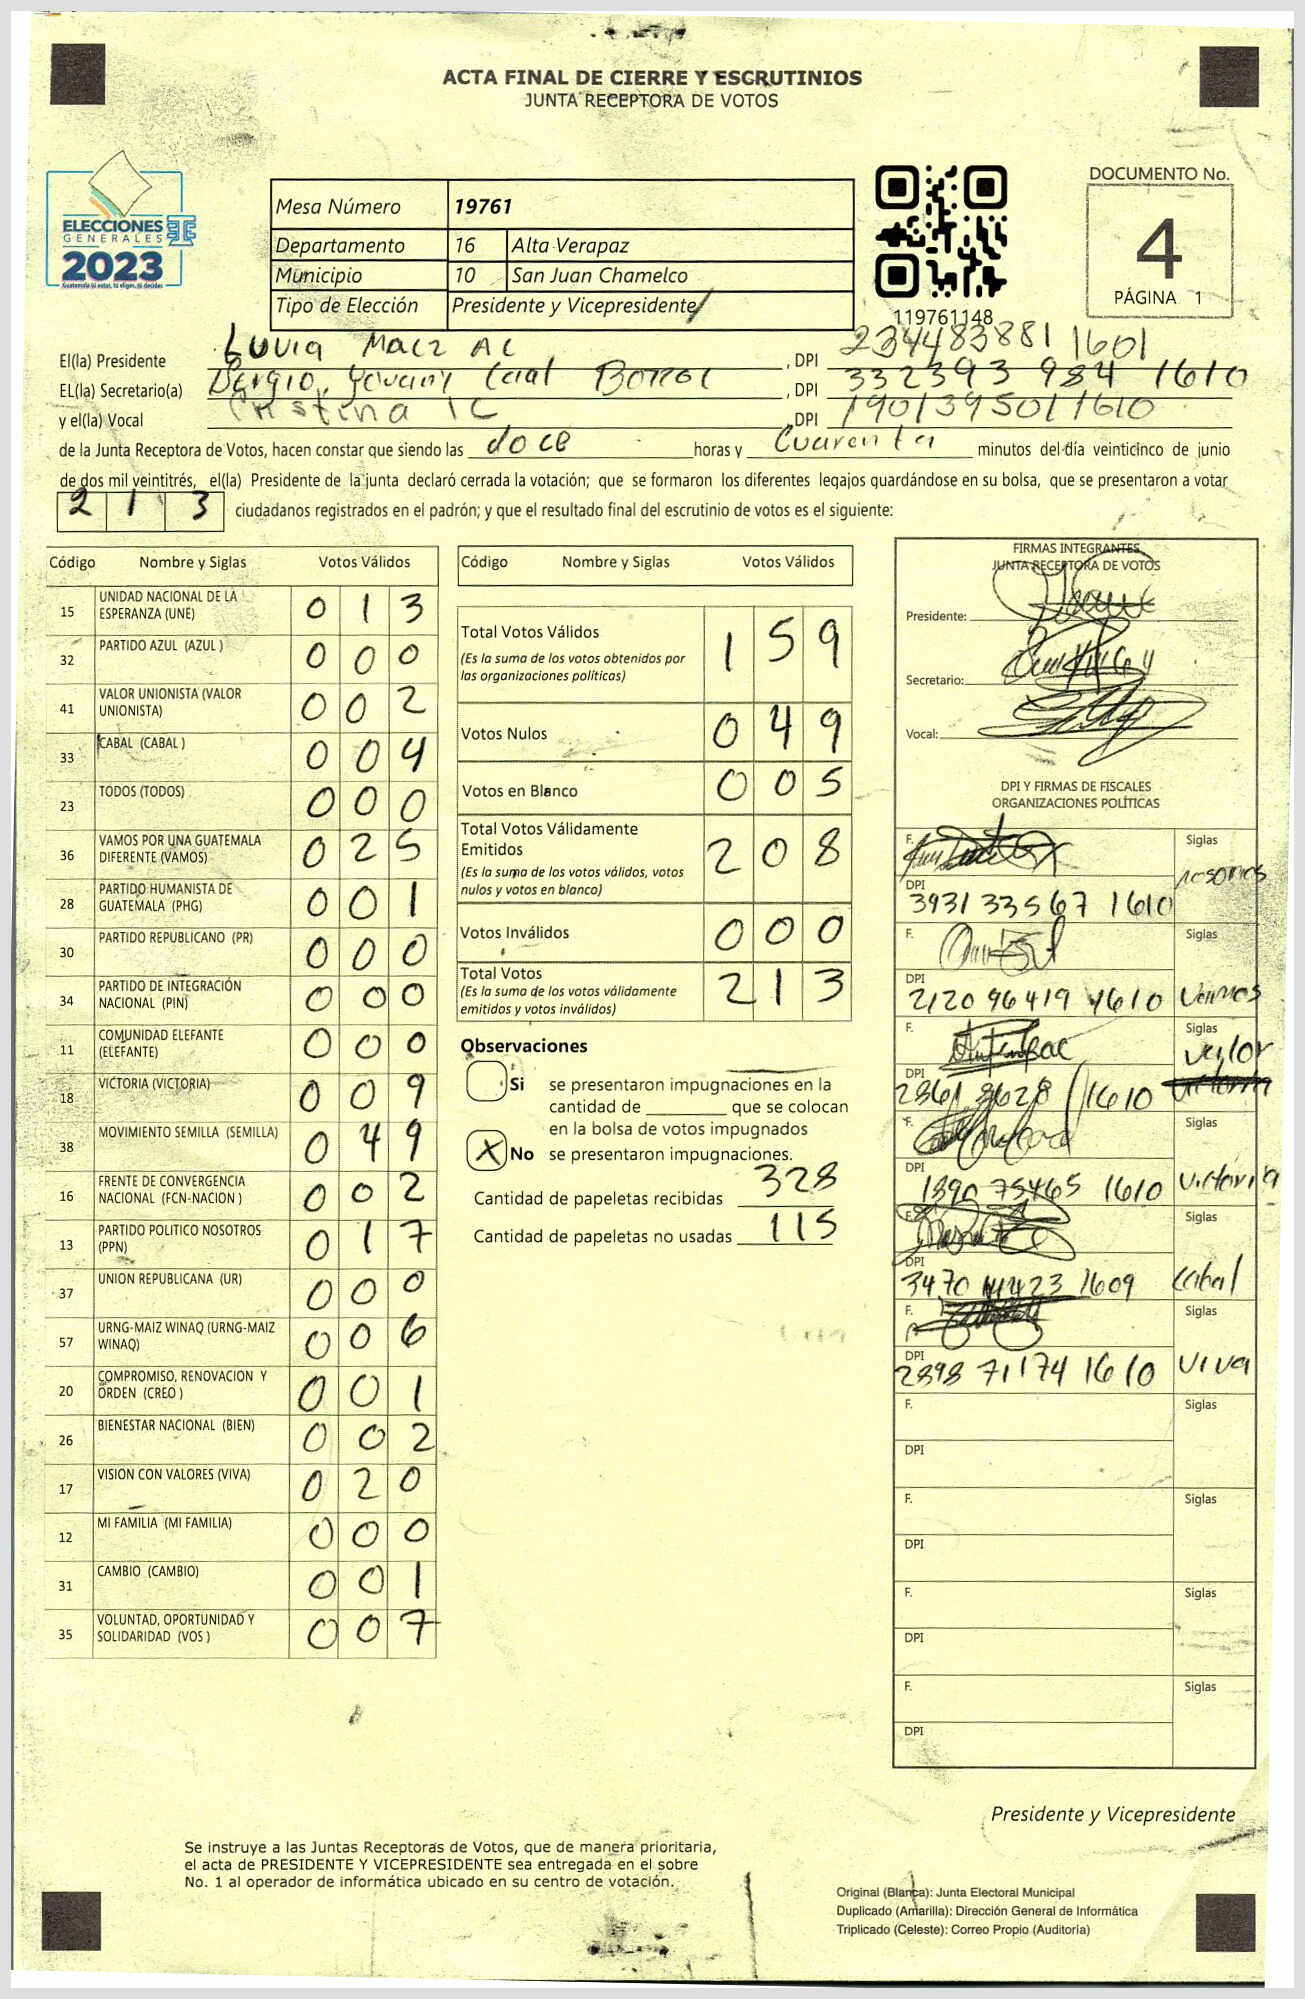 ACTA FINAL DE CIERRE Y ESCRUTINIOS
JUNTA RECEPTORA DE VOTOS
ELECCIONES
GENERALES
2023
Guatemala tú votas, tú eliges, tú decides
Mesa Número 19761
Departamento 16 Alta Verapaz
Municipio 10 San Juan Chamelco
Tipo de Elección Presidente y Vicepresidente
119761148
DOCUMENTO No.
4
PÁGINA 1
El(la) Presidente Luvia Macz Ac , DPI 234483881 1601
EL(la) Secretario(a) Sergio Yovany Caal , DPI 332393 984 1610
y el(la) Vocal Cristina Ic , DPI 190139501 1610
de la Junta Receptora de Votos, hacen constar que siendo las doce horas y Cuarenta minutos del día veinticinco de junio
de dos mil veintitrés, el(la) Presidente de la junta declaró cerrada la votación; que se formaron los diferentes legajos guardándose en su bolsa, que se presentaron a votar
2 1 3 ciudadanos registrados en el padrón; y que el resultado final del escrutinio de votos es el siguiente:
Código Nombre y Siglas Votos Válidos
15 UNIDAD NACIONAL DE LA ESPERANZA (UNE) 0 1 3
32 PARTIDO AZUL (AZUL ) 0 0 0
41 VALOR UNIONISTA (VALOR UNIONISTA) 0 0 2
33 CABAL (CABAL ) 0 0 4
23 TODOS (TODOS) 0 0 0
36 VAMOS POR UNA GUATEMALA DIFERENTE (VAMOS) 0 2 5
28 PARTIDO HUMANISTA DE GUATEMALA (PHG) 0 0 1
30 PARTIDO REPUBLICANO (PR) 0 0 0
34 PARTIDO DE INTEGRACIÓN NACIONAL (PIN) 0 0 0
11 COMUNIDAD ELEFANTE (ELEFANTE) 0 0 0
18 VICTORIA (VICTORIA) 0 0 9
38 MOVIMIENTO SEMILLA (SEMILLA) 0 4 9
16 FRENTE DE CONVERGENCIA NACIONAL (FCN-NACION ) 0 0 2
13 PARTIDO POLITICO NOSOTROS (PPN) 0 1 7
37 UNION REPUBLICANA (UR) 0 0 0
57 URNG-MAIZ WINAQ (URNG-MAIZ WINAQ) 0 0 6
20 COMPROMISO, RENOVACION Y ORDEN (CREO ) 0 0 1
26 BIENESTAR NACIONAL (BIEN) 0 0 2
17 VISION CON VALORES (VIVA) 0 2 0
12 MI FAMILIA (MI FAMILIA) 0 0 0
31 CAMBIO (CAMBIO) 0 0 1
35 VOLUNTAD, OPORTUNIDAD Y SOLIDARIDAD (VOS ) 0 0 7
Código Nombre y Siglas Votos Válidos
Total Votos Válidos 1 5 9
(Es la suma de los votos obtenidos por
las organizaciones políticas)
Votos Nulos 0 4 9
Votos en Blanco 0 0 5
Total Votos Válidamente
Emitidos 2 0 8
(Es la suma de los votos válidos, votos
nulos y votos en blanco)
Votos Inválidos 0 0 0
Total Votos 2 1 3
(Es la suma de los votos válidamente
emitidos y votos inválidos)
Observaciones
Si se presentaron impugnaciones en la
cantidad de ________ que se colocan
en la bolsa de votos impugnados
X No se presentaron impugnaciones.
Cantidad de papeletas recibidas 328
Cantidad de papeletas no usadas 115
FIRMAS INTEGRANTES
JUNTA RECEPTORA DE VOTOS
Presidente:
Secretario:
Vocal:
DPI Y FIRMAS DE FISCALES
ORGANIZACIONES POLÍTICAS
F. Siglas
DPI
3931 33567 1610
F. Siglas
DPI
2120 96419 1610 Vamos
F. Siglas
valor
2861 8628 1610
F. Siglas
DPI
1890 75465 1610 Victoria
F. Siglas
DPI
3470 1609 Cabal
F. Siglas
DPI
2898 71174 1610 Viva
F. Siglas
DPI
F. Siglas
DPI
F. Siglas
DPI
F. Siglas
DPI
Presidente y Vicepresidente
Se instruye a las Juntas Receptoras de Votos, que de manera prioritaria,
el acta de PRESIDENTE Y VICEPRESIDENTE sea entregada en el sobre
No. 1 al operador de informática ubicado en su centro de votación.
Original (Blanca): Junta Electoral Municipal
Duplicado (Amarilla): Dirección General de Informática
Triplicado (Celeste): Correo Propio (Auditoría)